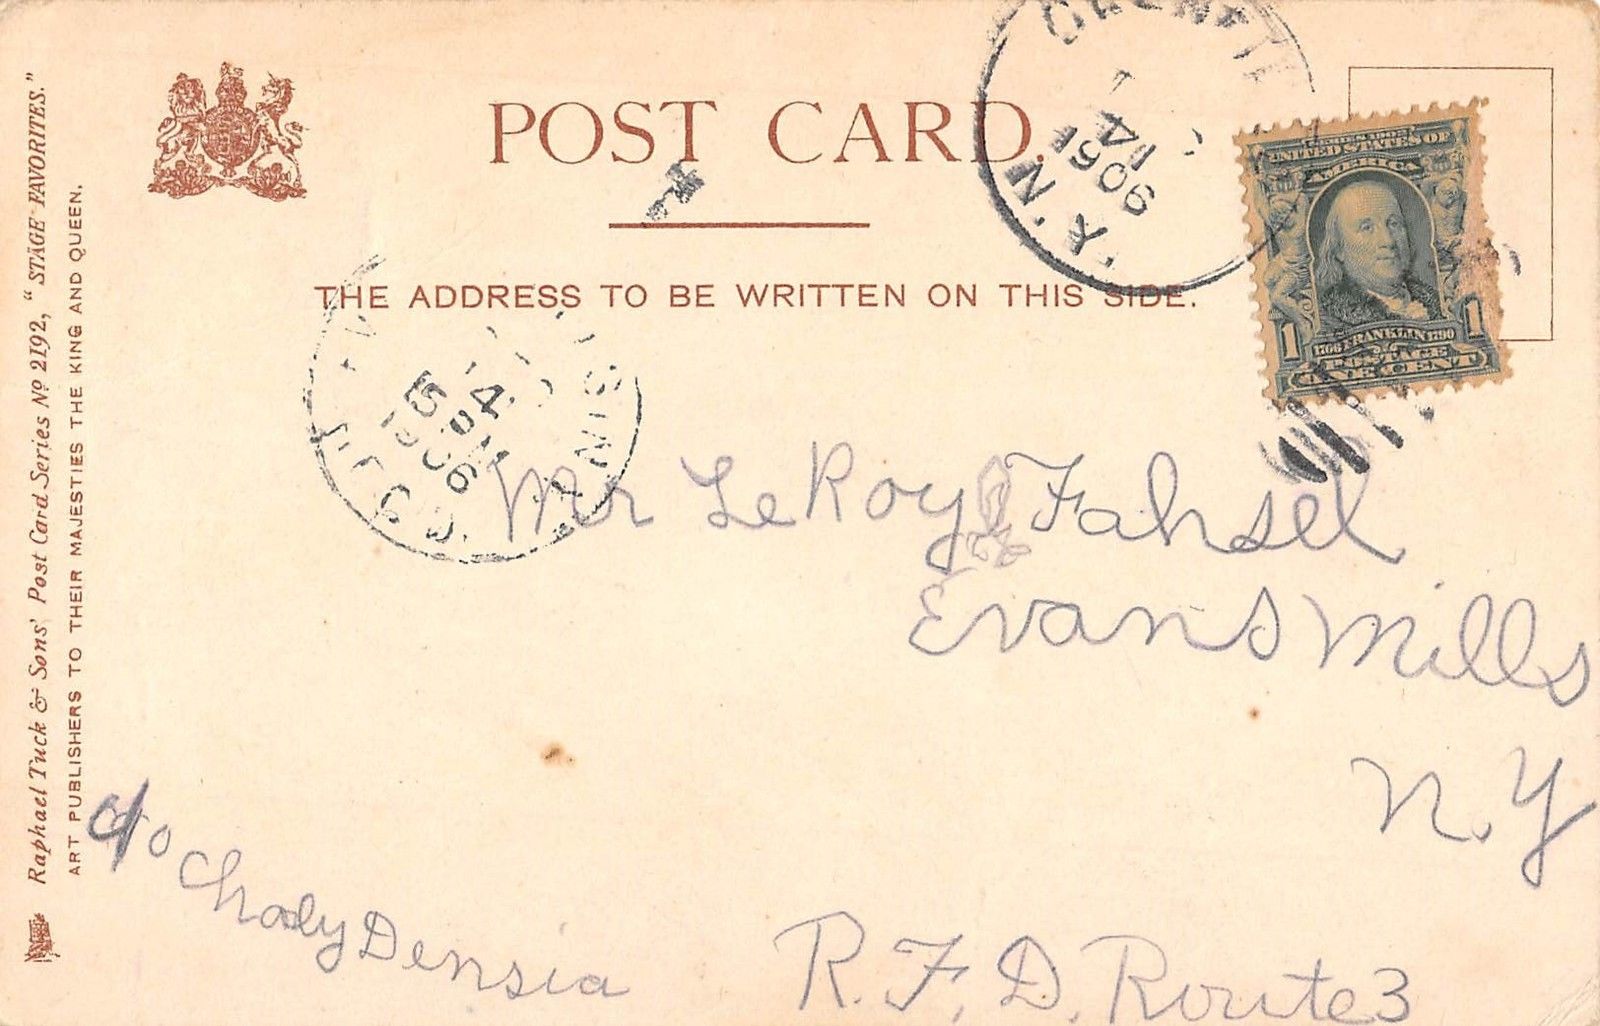 POST CARD.
THE ADDRESS TO BE WRITTEN ON THIS SIDE.
Raphael Tuck & Sons' Post Card Series No 2192, "STAGE FAVORITES."
ART PUBLISHERS TO THEIR MAJESTIES THE KING AND QUEEN.
N.Y.
1906
SERIES 1902
UNITED STATES OF
AMERICA
1706 FRANKLIN 1790
1 1
POSTAGE
ONE CENT
4
5 PM
1906
Mr LeRoy Fahsel
Evans Mills
N.Y
c/o Chody Densia
R.F.D. Route 3